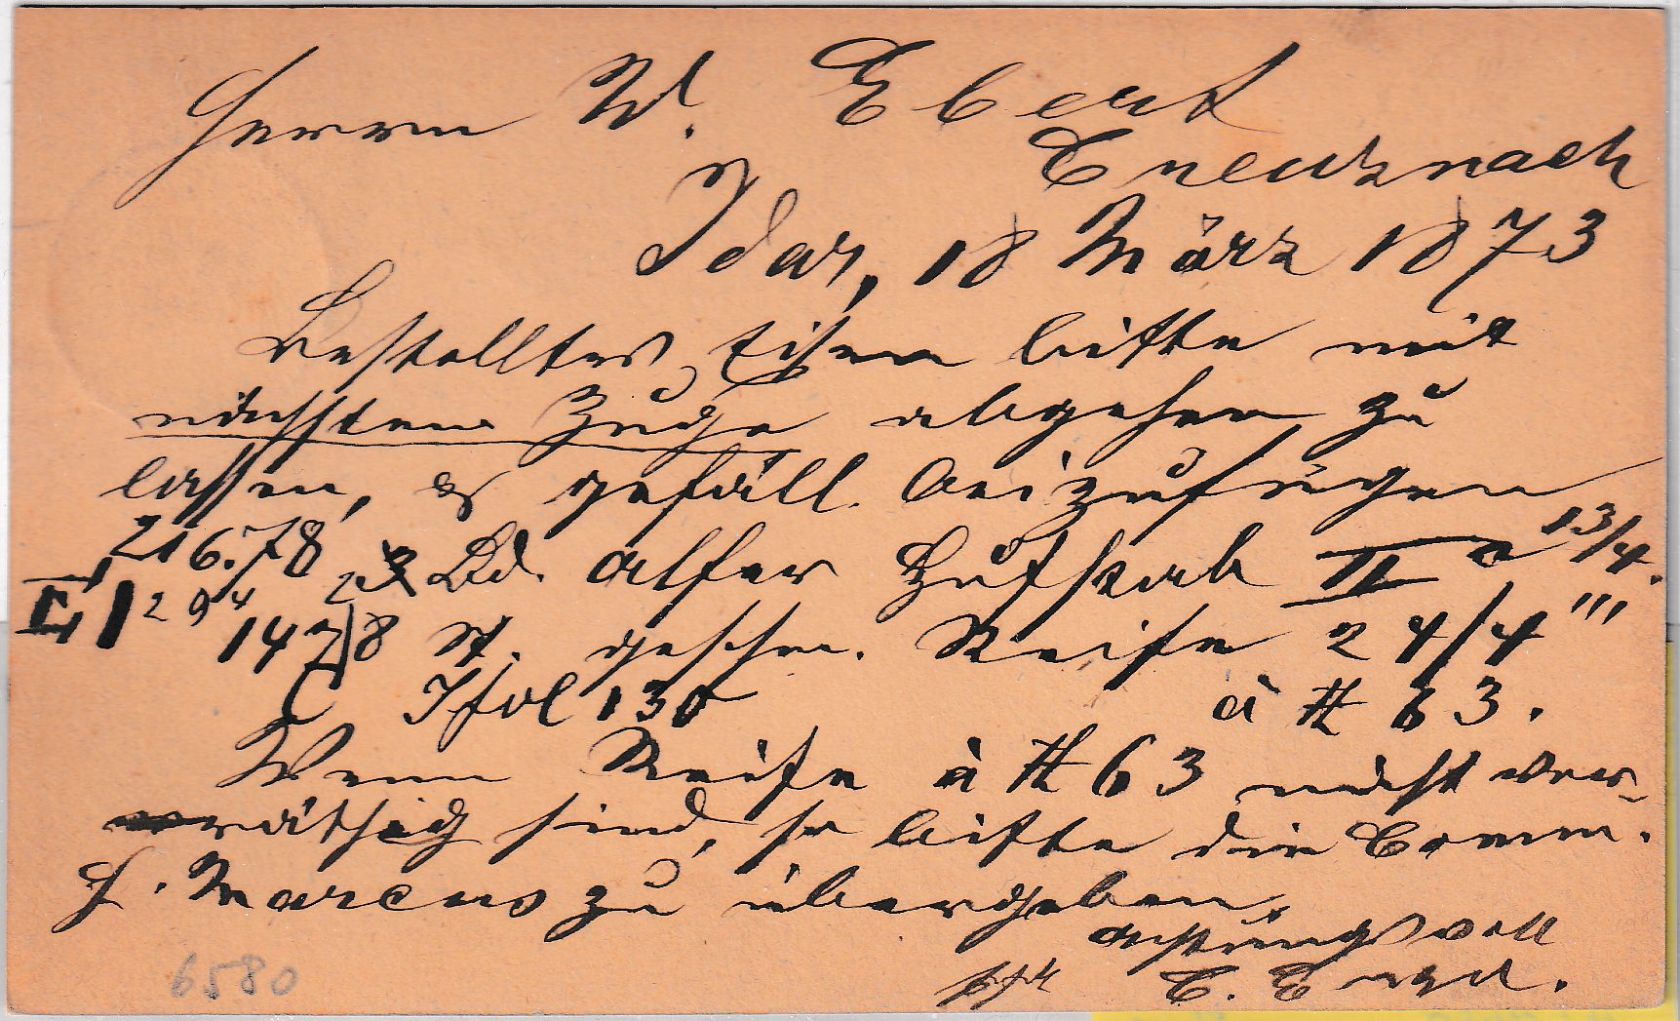 Herrn W. Ebert
Creuznach
Idar, 18 März 1873
Bestelltes Eisen bitte mit
nächstem Zuge abgehen zu
lassen, & gefäll. beizufügen
216.78 2 Bd. Hufstab II a 13/4.
E 1 204
147/8 St. geschm. Reife 24/4'''
C 130 à ℔ 63.
Wenn Reife à ℔ 63 nicht vor-
räthig sind, so bitte die Comm.
H. Marcus zu übergeben.
Achtungsvoll
C.
6580